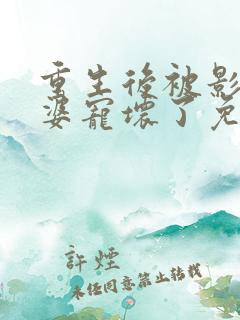 重生後被影
婆寵壞了免
許煙
未任同意禁止转载